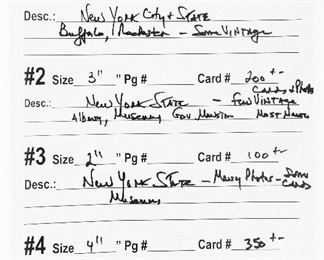 Desc.: New York City + State
Buffalo, Rochester - Some Vintage
#2 Size 3" " Pg # Card # 200 +-
Cards + Photos
Desc.: New York State - Few Vintage
Albany, Museums Gov. Mansion Most
#3 Size 2" " Pg # Card # 100 +-
Desc.: New York State - Many Photos - Some Cards
Museums
#4 Size 4" " Pg # Card # 350 +-